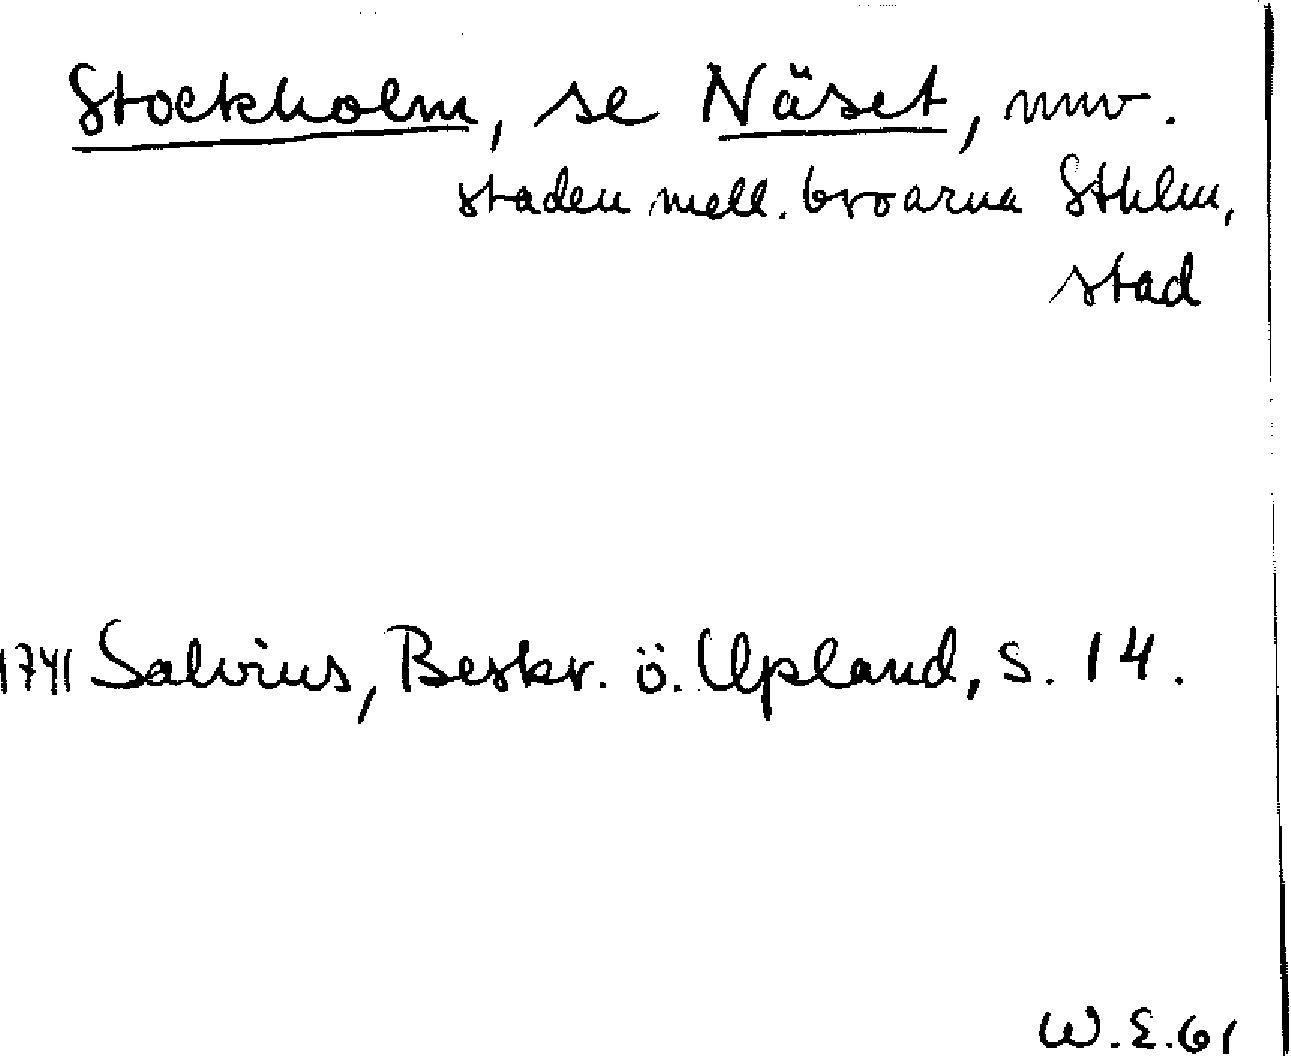 Stockholm, se Näset, nuv.
staden mell. broarna Sthlm,
stad
1741 Salvius, Beskr. ö. Upland, s. 14.
W.E.61